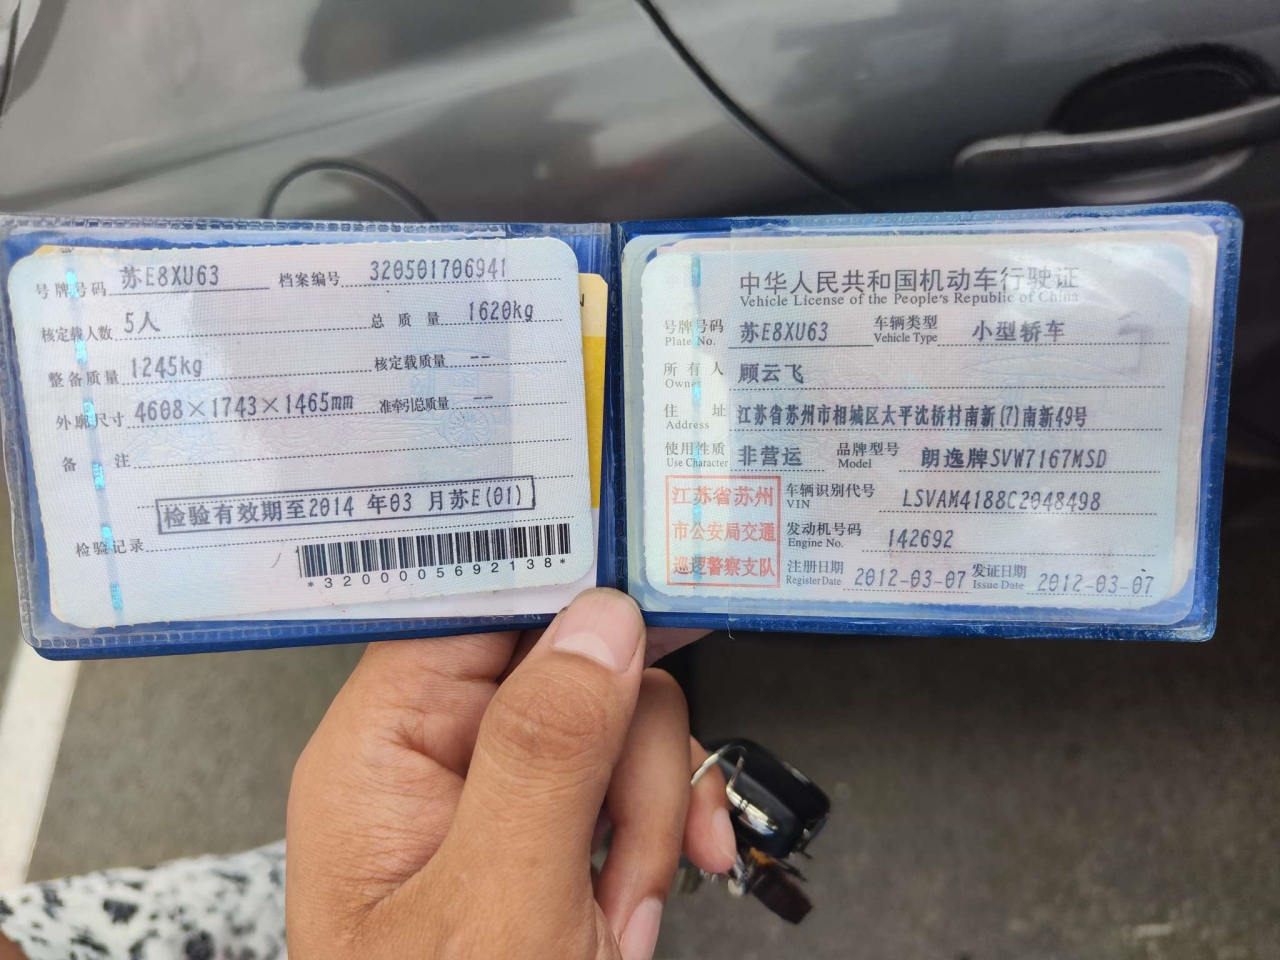 号牌号码 苏E8XU63 档案编号 320501706941
核定载人数 5人 总质量 1620kg
整备质量 1245kg 核定载质量 --
外廓尺寸 4608×1743×1465mm 准牵引总质量 --
备注
检验有效期至2014年03月苏E(01)
检验记录
*3200005692138*
中华人民共和国机动车行驶证
Vehicle License of the People's Republic of China
号牌号码 苏E8XU63 车辆类型 小型轿车
Plate No. Vehicle Type
所有人 顾云飞
Owner
住址 江苏省苏州市相城区太平沈桥村南新(7)南新49号
Address
使用性质 非营运 品牌型号 朗逸牌SVW7167MSD
Use Character Model
江苏省苏州
市公安局交通
巡逻警察支队
车辆识别代号 LSVAM4188C2048498
VIN
发动机号码 142692
Engine No.
注册日期 2012-03-07 发证日期 2012-03-07
Register Date Issue Date
N